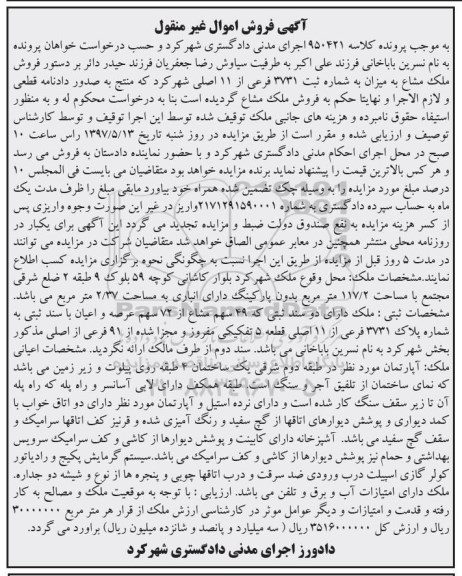 آگهی فروش اموال غیر منقول
به موجب پرونده کلاسه ۹۵۰۴۲۱ اجرای مدنی دادگستری شهرکرد و حسب درخواست خواهان پرونده
به نام نسرین باباخانی فرزند علی اکبر به طرفیت سیاوش رضا جعفریان فرزند حیدر دائر بر دستور فروش
ملک مشاع به میزان به شماره ثبت ۳۷۳۱ فرعی از ۱۱ اصلی شهرکرد که منتج به صدور دادنامه قطعی
و لازم الاجرا و نهایتا حکم به فروش ملک مشاع گردیده است بنا به درخواست محکوم له و به منظور
استیفاء حقوق نامبرده و هزینه های جانبی ملک توقیف شده توسط این اجرا توقیف و توسط کارشناس
توصیف و ارزیابی شده و مقرر است از طریق مزایده در روز شنبه تاریخ ۱۳۹۷/۵/۱۳ راس ساعت ۱۰
صبح در محل اجرای احکام مدنی دادگستری شهرکرد و با حضور نماینده دادستان به فروش می رسد
و هر کس بالاترین قیمت را پیشنهاد نماید برنده مزایده خواهد بود متقاضیان می بایست فی المجلس ۱۰
درصد مبلغ مورد مزایده را به وسیله چک تضمین شده همراه خود بیاورد مابقی مبلغ را ظرف مدت یک
ماه به حساب سپرده دادگستری به شماره ۲۱۷۱۲۹۱۵۹۰۰۰۱واریز در غیر این صورت وجوه واریزی پس
از کسر هزینه مزایده به نفع صندوق دولت ضبط و مزایده تجدید می گردد این آگهی برای یکبار در
روزنامه محلی منتشر همچنین در معابر عمومی الصاق خواهد شد متقاضیان شرکت در مزایده می توانند
در مدت ۵ روز قبل از مزایده از طریق این اجرا نسبت به چگونگی نحوه برگزاری مزایده کسب اطلاع
نمایند.مشخصات ملک: محل وقوع ملک شهرکرد بلوار کاشانی کوچه ۵۹ بلوک ۹ طبقه ۲ ضلع شرقی
مجتمع با مساحت ۱۱۷/۲ متر مربع بدون پارکینگ دارای انباری به مساحت ۲/۳۷ متر مربع می باشد.
مشخصات ثبتی : ملک دارای دو سند ثبتی که ۴۹ سهم مشاع از ۷۲ سهم عرصه و اعیان با سند ثبتی به
شماره پلاک ۳۷۳۱ فرعی از ۱۱ اصلی قطعه ۵ تفکیکی مفروز و مجزا شده از ۹۱ فرعی از اصلی مذکور
بخش شهرکرد به نام نسرین باباخانی می باشد. سند دوم از طرف مالک ارائه نگردید. مشخصات اعیانی
ملک: آپارتمان مورد نظر در طبقه دوم شرقی یک ساختمان ۴ طبقه روی پیلوت و زیر زمین می باشد
که نمای ساختمان از تلفیق آجر و سنگ است طبقه همکف دارای لابی آسانسر و راه پله که راه پله
آن تا زیر سقف سنگ کار شده است و دارای نرده استیل و آپارتمان مورد نظر دارای دو اتاق خواب با
کمد دیواری و پوشش دیوارهای اتاقها از گچ سفید و رنگ آمیزی شده و قرنیز کف اتاقها سرامیک و
سقف گچ سفید می باشد. آشپزخانه دارای کابینت و پوشش دیوارها از کاشی و کف سرامیک سرویس
بهداشتی و حمام نیز پوشش دیوارها از کاشی و کف سرامیک می باشد.سیستم گرمایش پکیج و رادیاتور
کولر گازی اسپیلت درب ورودی ضد سرقت و درب اتاقها چوبی و پنجره ها از نوع و شیشه دو جداره.
ملک دارای امتیازات آب و برق و تلفن می باشد. ارزیابی : با توجه به موقعیت ملک و مصالح به کار
رفته و قدمت و امتیازات و دیگر عوامل موثر در کارشناسی ارزش ملک از قرار هر متر مربع ۳۰۰۰۰۰۰۰
ریال و ارزش کل ۳۵۱۶۰۰۰۰۰۰ ریال ( سه میلیارد و پانصد و شانزده میلیون ریال) براورد می گردد.
دادورز اجرای مدنی دادگستری شهرکرد